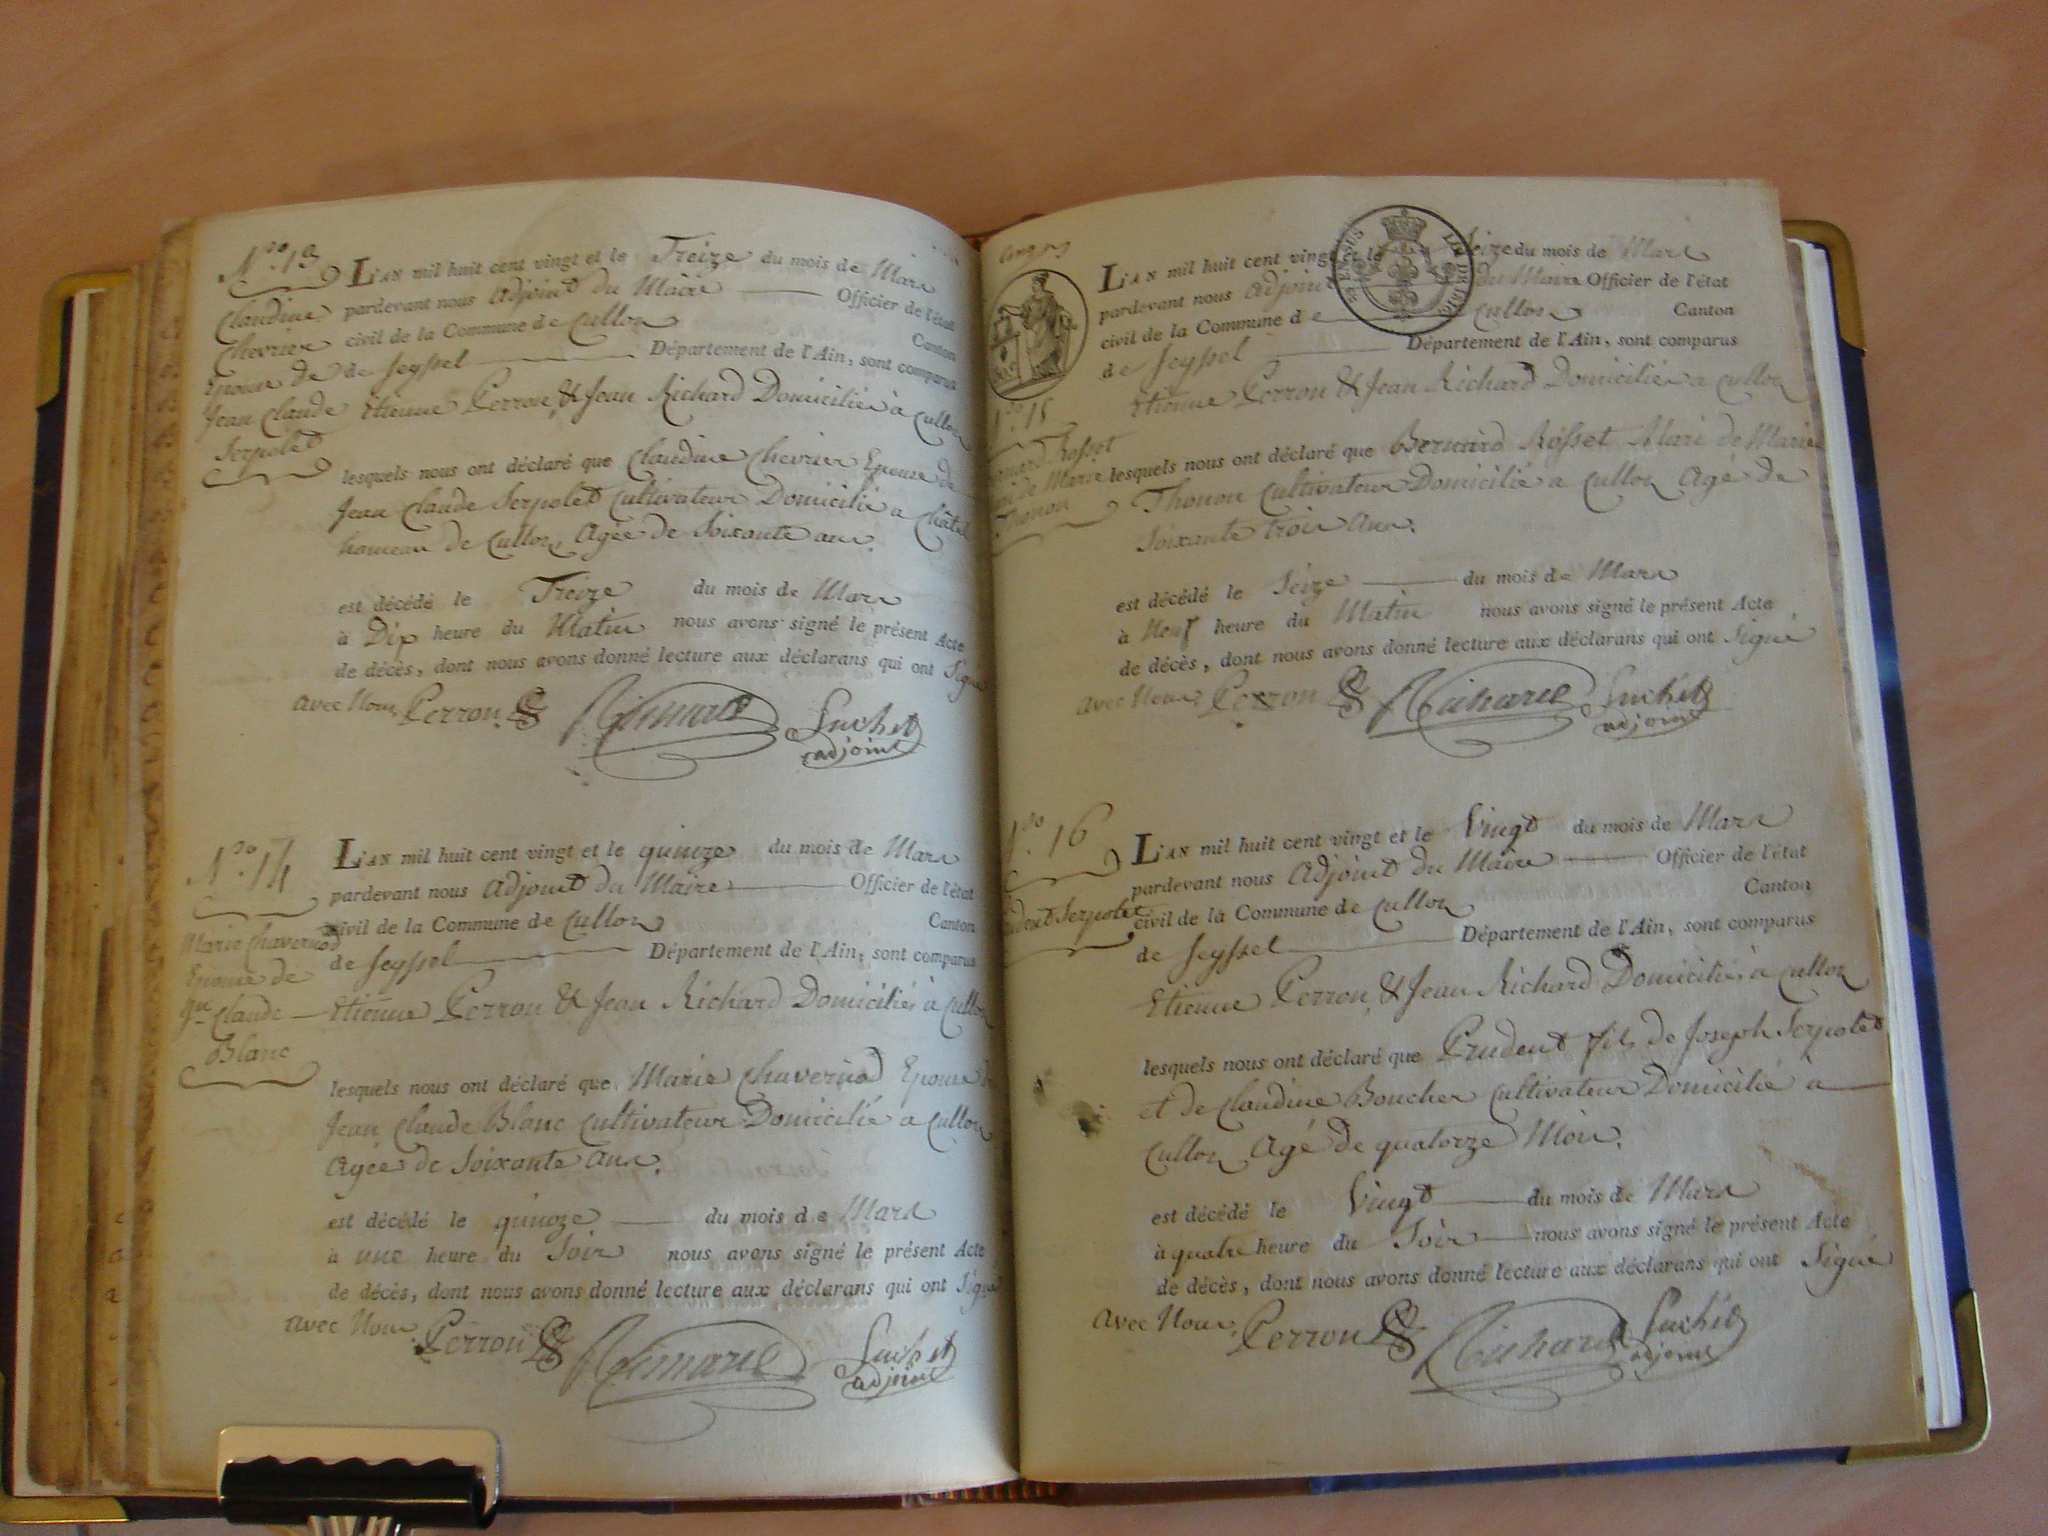 N.ro 13
Claudine
Chevrier
Epouse de
Jean Claude
Serpolet
L'an mil huit cent vingt et le Treize du mois de Mars
pardevant nous Adjoint du Maire Officier de l'état
civil de la Commune de Culloz Canton
de Seyssel Département de l'Ain, sont comparus
Etienne Perron & Jean Richard Domiciliés à Culloz
lesquels nous ont déclaré que Claudine Chevrier Epouse de
Jean Claude Serpolet Cultivateur Domicilié a Châtel
hameau de Culloz, Agée de Soixante ans.
est décédé le Treize du mois de Mars
à Dix heure du Matin nous avons signé le présent Acte
de décès, dont nous avons donné lecture aux déclarans qui ont Signé
avec Nous Perron Richard Suchet
adjoint
N.ro 14
Marie Chavernod
Epouse de
Jn Claude
Blanc
L'an mil huit cent vingt et le quinze du mois de Mars
pardevant nous Adjoint du Maire Officier de l'état
civil de la Commune de Culloz Canton
de Seyssel Département de l'Ain, sont comparus
Etienne Perron & Jean Richard Domiciliés à Culloz
lesquels nous ont déclaré que Marie Chavernod Epouse de
Jean Claude Blanc Cultivateur Domicilié a Culloz
Agée de Soixante Ans.
est décédé le quinze du mois de Mars
à une heure du Soir nous avons signé le présent Acte
de décès, dont nous avons donné lecture aux déclarans qui ont Signé
avec Nous Perron Richard Suchet
adjoint
15
Rosset
de Marie
Thonon
L'an mil huit cent vingt et le Seize du mois de Mars
pardevant nous Adjoint du Maire Officier de l'état
civil de la Commune de Culloz Canton
de Seyssel Département de l'Ain, sont comparus
Etienne Perron & Jean Richard Domiciliés a Culloz
lesquels nous ont déclaré que Bernard Rosset Mari de Marie
Thonon Cultivateur Domicilié a Culloz Agé de
Soixante trois ans.
est décédé le Seize du mois de Mars
à Neuf heure du Matin nous avons signé le présent Acte
de décès, dont nous avons donné lecture aux déclarans qui ont Signé
avec Nous Perron Richard Suchet
adjoint
16
Serpolet
L'an mil huit cent vingt et le Vingt du mois de Mars
pardevant nous Adjoint du Maire Officier de l'état
civil de la Commune de Culloz Canton
de Seyssel Département de l'Ain, sont comparus
Etienne Perron & Jean Richard Domiciliés à Culloz
lesquels nous ont déclaré que Prudent fils de Joseph Serpolet
et de Claudine Boucher Cultivateur Domicilié à
Culloz Agé de quatorze Mois.
est décédé le Vingt du mois de Mars
à quatre heure du Soir nous avons signé le présent Acte
de décès, dont nous avons donné lecture aux déclarans qui ont Signé
avec Nous Perron Richard Suchet
adjoint